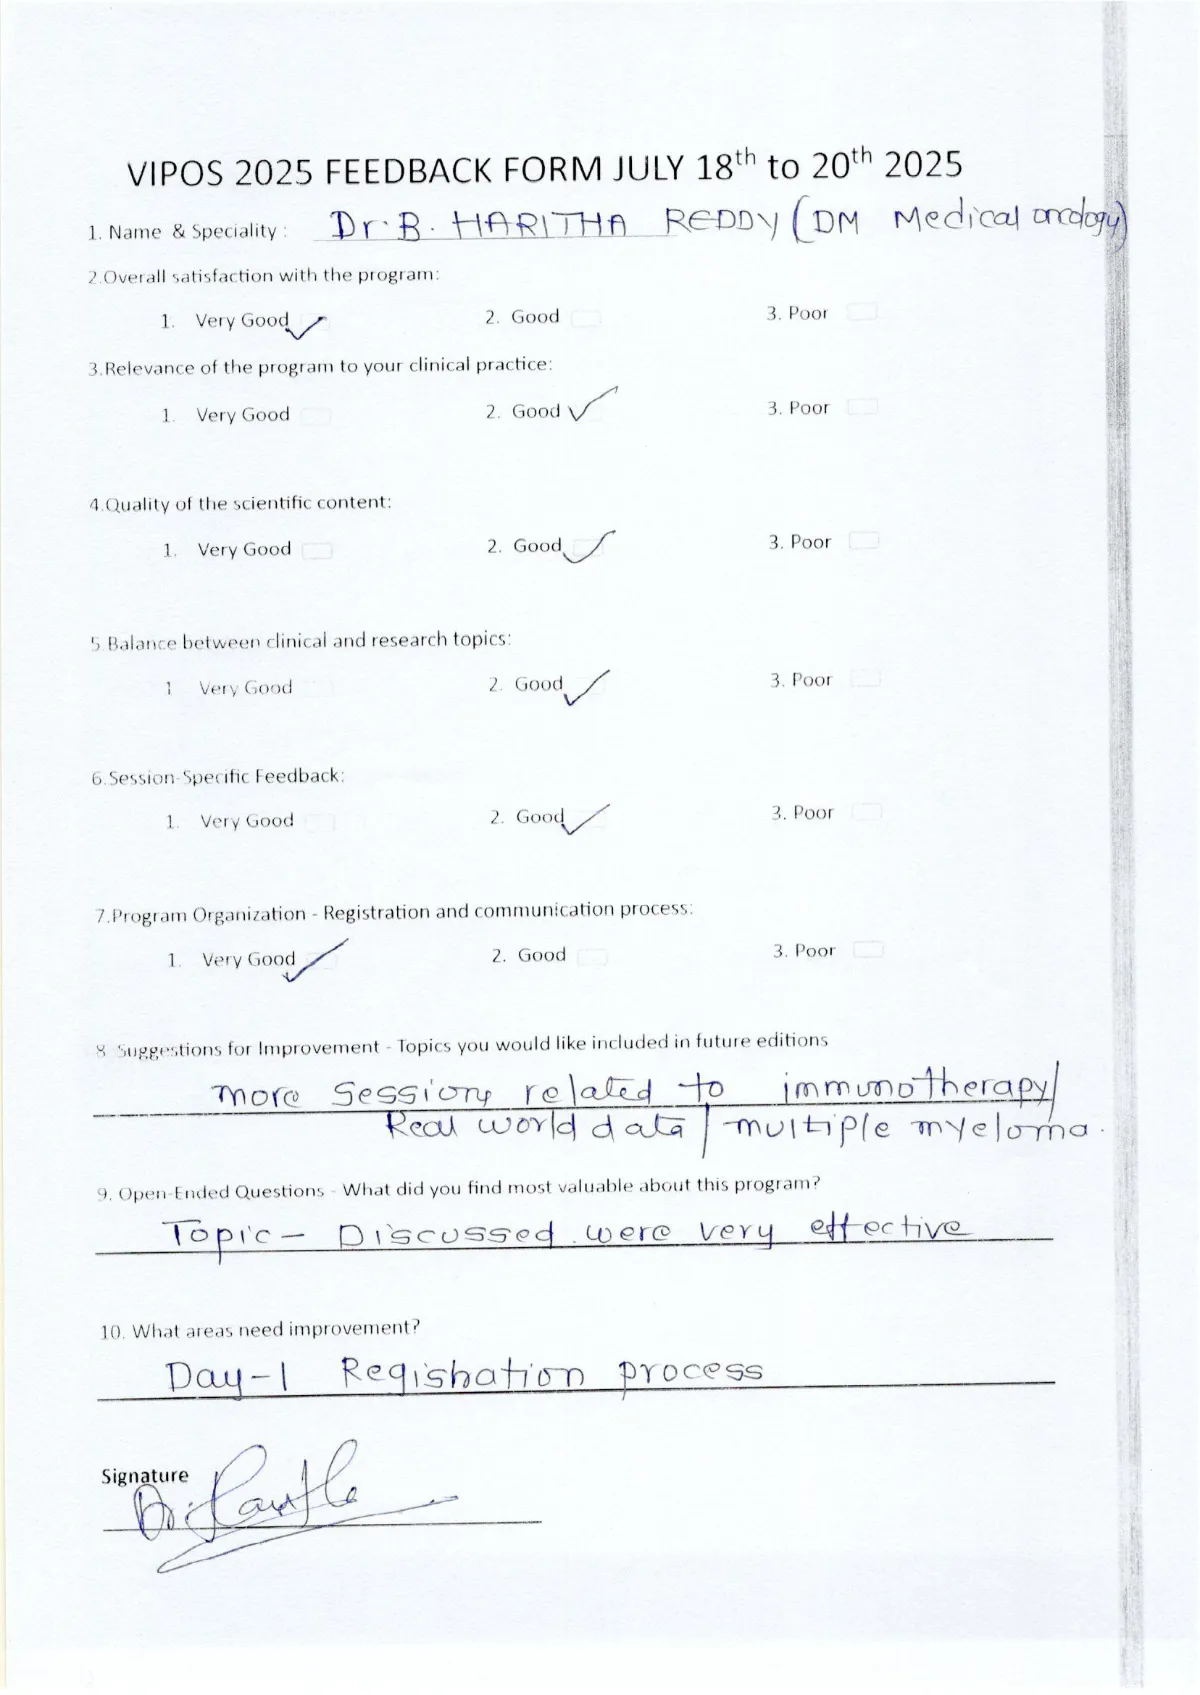 VIPOS 2025 FEEDBACK FORM JULY 18th to 20th 2025
1. Name & Speciality : Dr. B. HARITHA REDDY (DM Medical oncology)
2.Overall satisfaction with the program:
1. Very Good ✓ 2. Good 3. Poor
3.Relevance of the program to your clinical practice:
1. Very Good 2. Good ✓ 3. Poor
4.Quality of the scientific content:
1. Very Good 2. Good ✓ 3. Poor
5 Balance between clinical and research topics:
1 Very Good 2. Good ✓ 3. Poor
6.Session-Specific Feedback:
1. Very Good 2. Good ✓ 3. Poor
7.Program Organization - Registration and communication process:
1. Very Good ✓ 2. Good 3. Poor
8 Suggestions for Improvement - Topics you would like included in future editions
more sessions related to immunotherapy/
Real world data / multiple myeloma.
9. Open-Ended Questions - What did you find most valuable about this program?
Topic - Discussed were very effective
10. What areas need improvement?
Day-1 Registration process
Signature